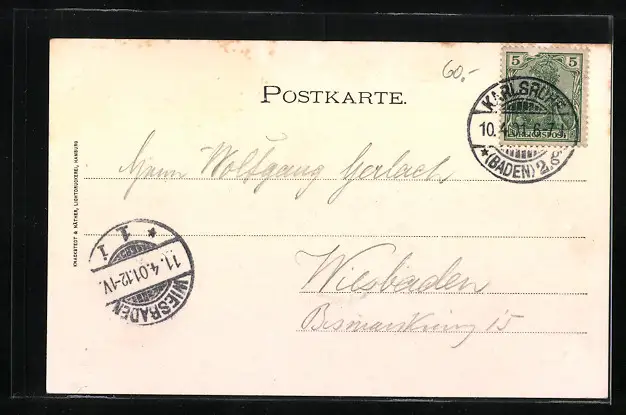 60.-
5 5
POSTKARTE.
KARLSRUHE
10.4.01. 6-7N
*(BADEN) 2.g
REICHSPOST
Herrn Wolfgang Gerlach
KNACKSTEDT & NÄTHER, LICHTDRUCKEREI, HAMBURG
* 1 i
11.4.01.12-1V.
WIESBADEN
Wiesbaden
Bismarkring 15